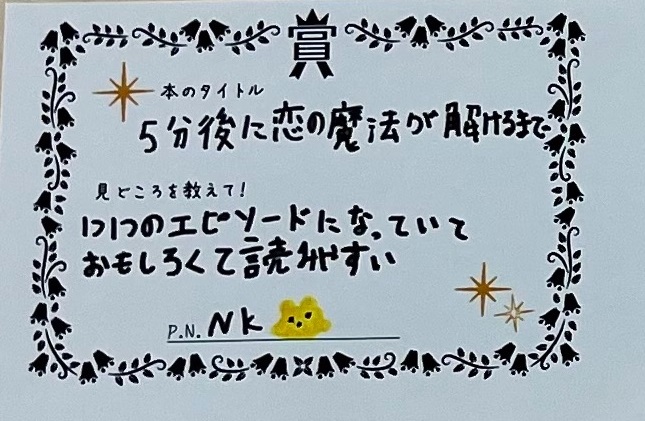 賞
本のタイトル
5分後に恋の魔法が解けるまで
見どころを教えて!
1つ1つのエピソードになっていて
おもしろくて読みやすい
P.N. NK